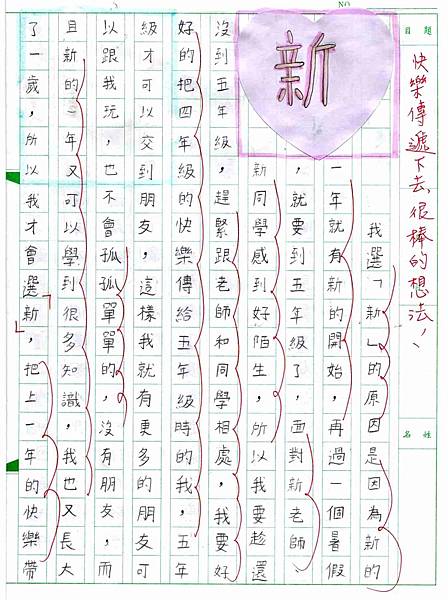 NO
題目
快樂傳遞下去,很棒的想法!
姓名
新
我選「新」的原因是因為新的
一年就有新的開始,再過一個暑假
,就要到五年級了,面對新老師、
新同學感到好陌生,所以我要趁還
沒到五年級,趕緊跟老師和同學相處,我要好
好的把四年級的快樂傳給五年級時的我,五年
級才可以交到朋友,這樣我就有更多的朋友可
以跟我玩,也不會孤孤單單的,沒有朋友,而
且新的一年又可以學到很多知識,我也又長大
了一歲,所以我才會選「新」,把上一年的快樂帶